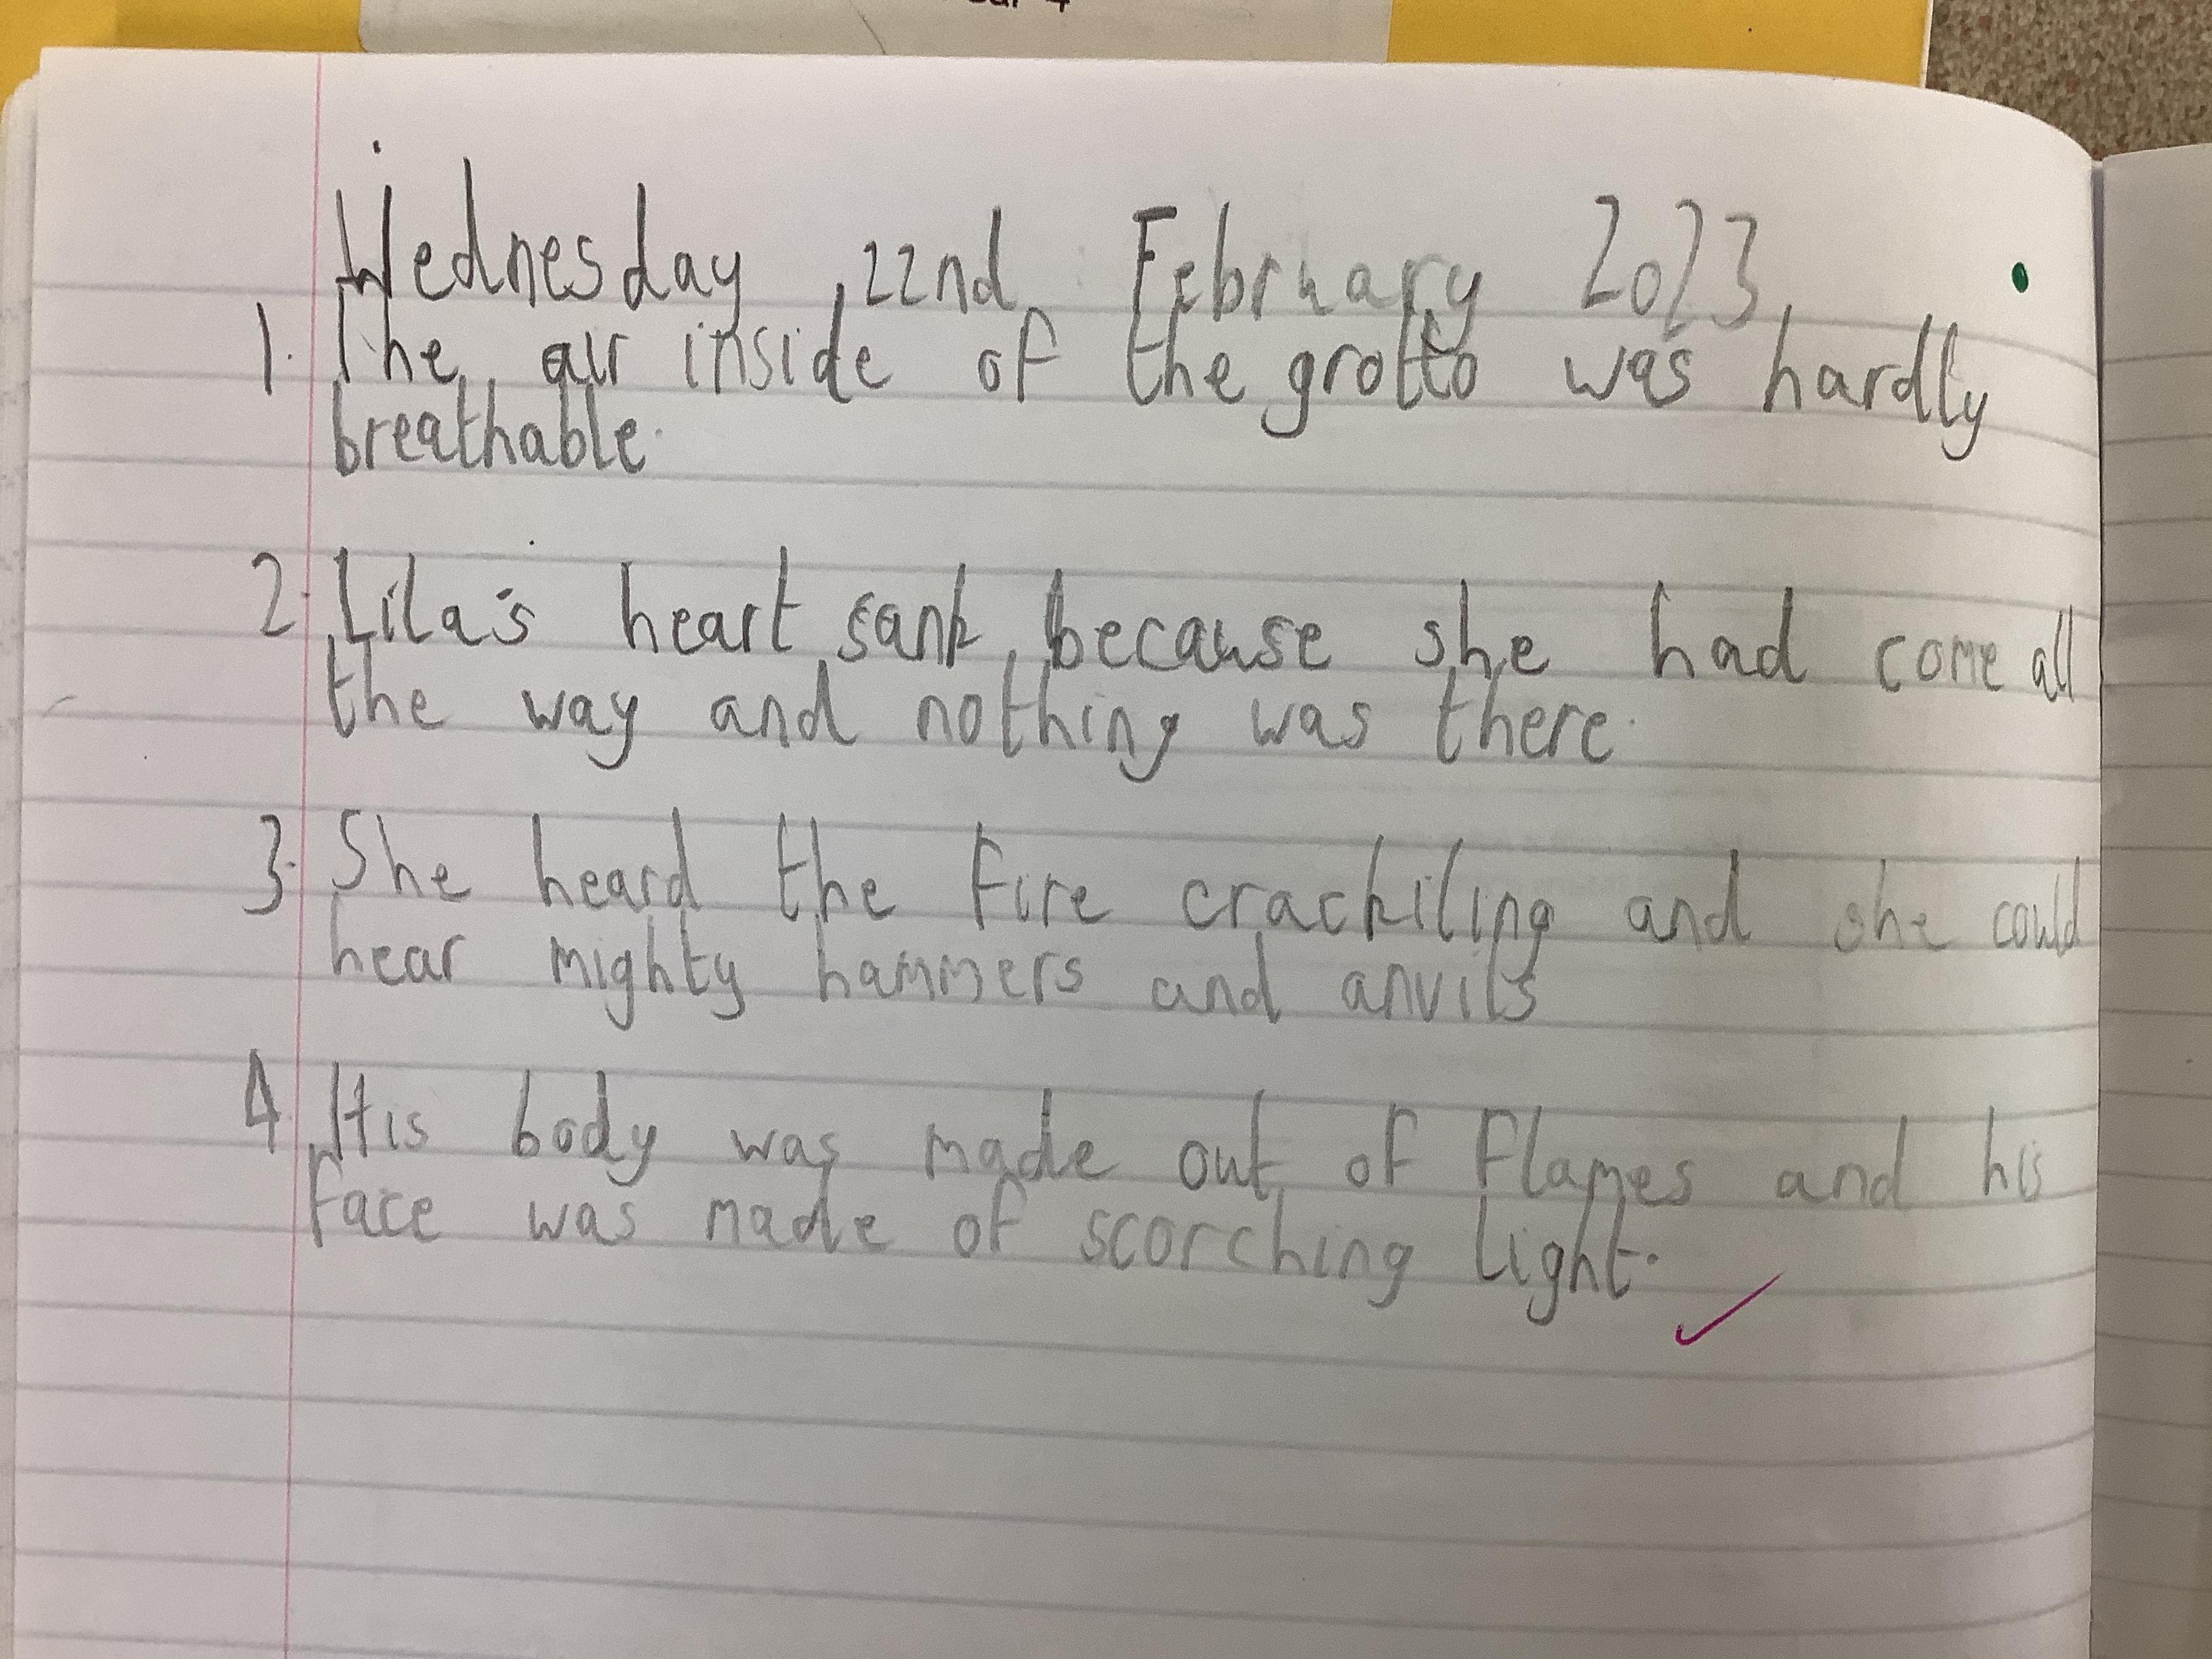 Wednesday 22nd February 2023
1. The air inside of the grotto was hardly
breathable.
2. Lila's heart sank because she had come all
the way and nothing was there.
3. She heard the fire crackiling and she could
hear mighty hammers and anvils
4. His body was made out of flames and his
face was made of scorching light.